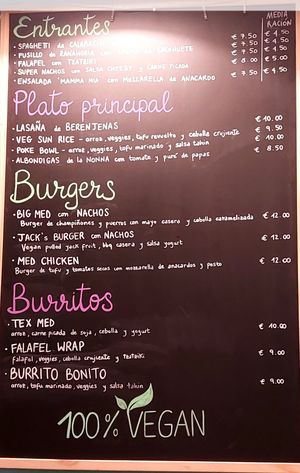 MEDIA
RACIÓN
Entrantes
• SPAGHETI de CALABACÍN € 7.50 € 4.50
€ 7.50 € 4.50
• FALAFEL con TZATZIKI € 8.00 € 5.00
• SUPER NACHOS con SALSA CHEESY y CARNE PICADA € 7.50 € 4.50
• ENSALADA "MAMMA MIA" con MOZZARELLA de ANACARDO
Plato principal
• LASAÑA de BERENJENAS € 10.00
• VEG SUN RICE - arroz, veggies, tofu revuelto y cebolla crujiente € 9.50
• POKE BOWL - arroz, veggies, tofu marinado y salsa tahin € 10.00
• ALBONDIGAS de la NONNA con tomate y puré de papas € 8.50
Burgers
• BIG MED con NACHOS € 12.00
Burger de champiñones y puerros con mayo casera y cebolla caramelizada
• JACK's BURGER con NACHOS € 12.00
Vegan pulled jack fruit, bbq casera y salsa yogurt
• MED CHICKEN € 12.00
Burger de tofu y tomates secos con mozzarella de anacardos y pesto
Burritos
• TEX MED € 10.00
arroz, carne picada de soja, cebolla y yogurt
• FALAFEL WRAP € 9.00
falafel, veggies, cebolla crujiente y tzatziki
• BURRITO BONITO € 9.00
arroz, tofu marinado, veggies y salsa tahin
100% VEGAN